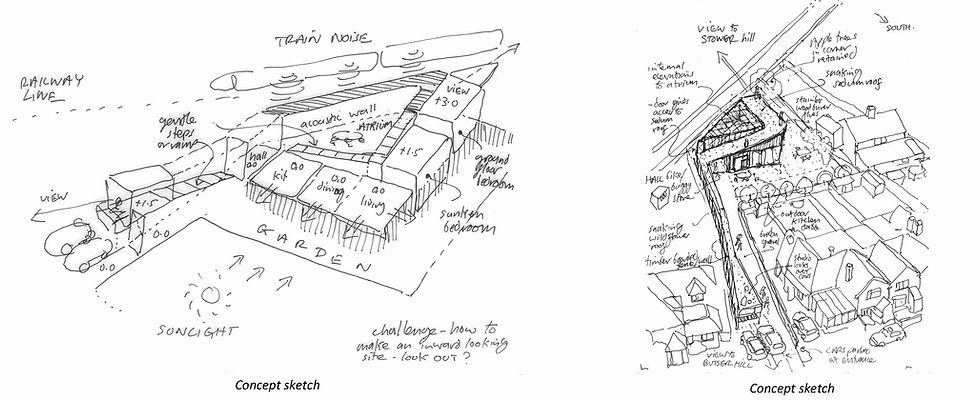 TRAIN NOISE
RAILWAY
LINE
gentle
steps
or ramp
acoustic wall
ATRIUM
VIEW
+3.0
+1.5
hall
0.0
0.0
kit
0.0
dining
0.0
living
ground
floor
bedroom
sunken
bedroom
VIEW
+1.5
0.0
0.0
GARDEN
SUNLIGHT
challenge - how to
make an inward looking
site - look out?
Concept sketch
VIEW TO
STOWER Hill
SOUTH.
Apple trees
in corner
retained
internal
elevations
to atrium
snaking
sedum roof
- door gives
access to
sedum
roof
HALL like
store
outdoor
kitchen
snaking
wildflower
roof
timber
studio
looks
over
cars
VIEW TO
BUTSER HILL
CARS parked
at entrance
Concept sketch